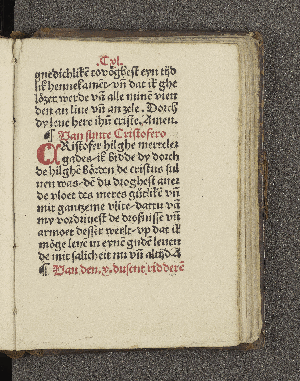 .Cvl.
gnedichlikē tovöghest eyn tijd
lik hennekamēt· vñ dat ik ghe
lözet werde vñ alle minē vien
den an liue vñ an zele. Dorch
dy leue here ihū criste. Amen.
¶ Van sunte Cristofero
CRistofer hilghe merteler
gades· ik bidde dy dorch
de hilghē börden de cristus sul
uen was· dē du droghest auer
de vloet des meres gütikē vñ
mit gantzeme vlite· dattu vñ
my vordriuest de drofnisse vñ
armoet desser werlt· vp dat ik
möge leuē in eynē gudē leuen
de mit salicheit nu vñ altijd· A
¶ Van den .x. dusent ridderē